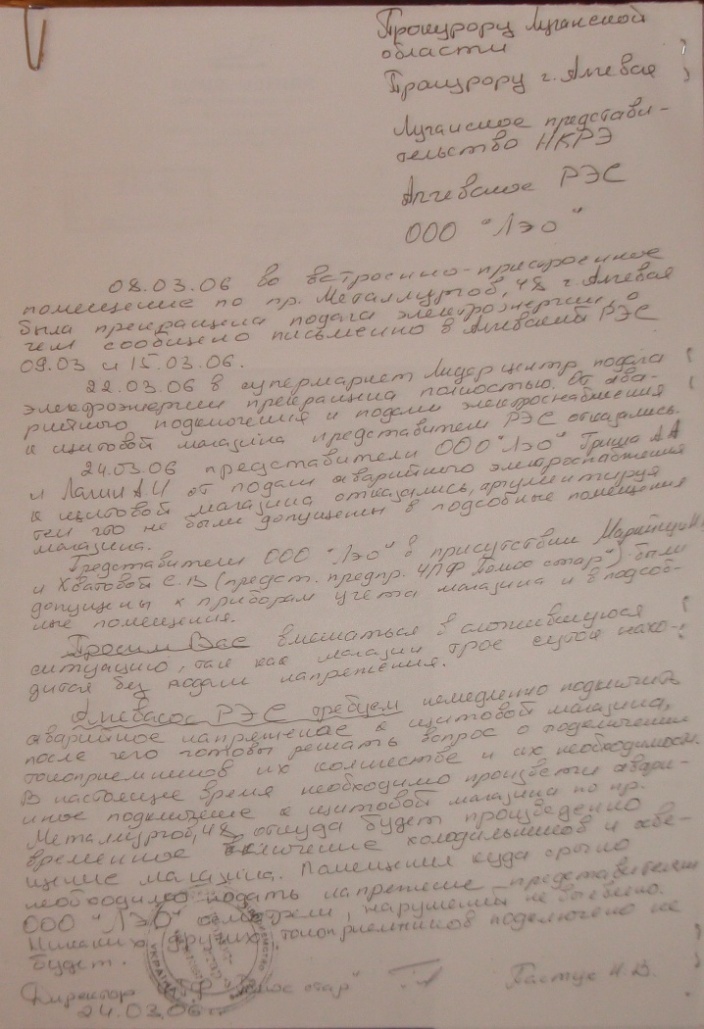 Прокурору Луганской
области
Прокурору г. Алчевая
Луганское представи-
тельство НКРЭ
Алчевское РЭС
ООО "Лэо"
08.03.06 во встроенно-пристроенное
помещение по пр. Металлургов, 48 г. Алчевая
была прекращена подача электроэнергии, о
чем сообщено письменно в Алчевский РЭС
09.03 и 15.03.06.
22.03.06 в супермаркет Лидер центр подача
электроэнергии прекращена полностью. От ава-
рийного подключения и подачи электроснабжения
к щитовой магазина представители РЭС отказались.
24.03.06 представители ООО "Лэо" Гриша А.А
и Лапин А.И от подачи аварийного электроснабжения
к щитовой магазина отказались, аргументируя
тем что не были допущены в подсобные помещения
магазина.
Представители ООО "Лэо" в присутствии
и Хватовой С.В (предст. предпр. ЧПФ "Полюс стар") были
допущены к приборам учета магазина и в подсоб-
ные помещения.
Просим Вас вмешаться в сложившуюся
ситуацию, так как магазин трое суток нахо-
дится без подачи напряжения.
РЭС требуем немедленно подключить
аварийное напряжение к щитовой магазина,
после чего готовы решать вопрос о подключении
токоприемников их количестве и их необходимости.
В настоящее время необходимо произвести авари-
йное подключение к щитовой магазина по пр.
Металлургов, 48, откуда будет произведено
временное включение холодильников и осве-
щение магазина. Помещения куда срочно
необходимо подать напряжение представители
ООО "ЛЭО" осмотрели, нарушений не выявлено.
Никаких других токоприемников подключено не
будет.
Директор ЧПФ "Полюс стар" Пастух И.В.
24.03.06